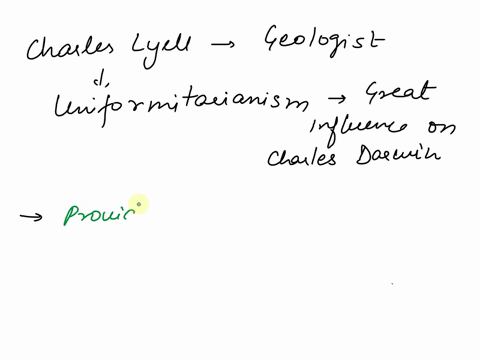 Charles Lyell → Geologist
↓
Uniformitarianism → Great
influence on
Charles Darwin
→ Provid